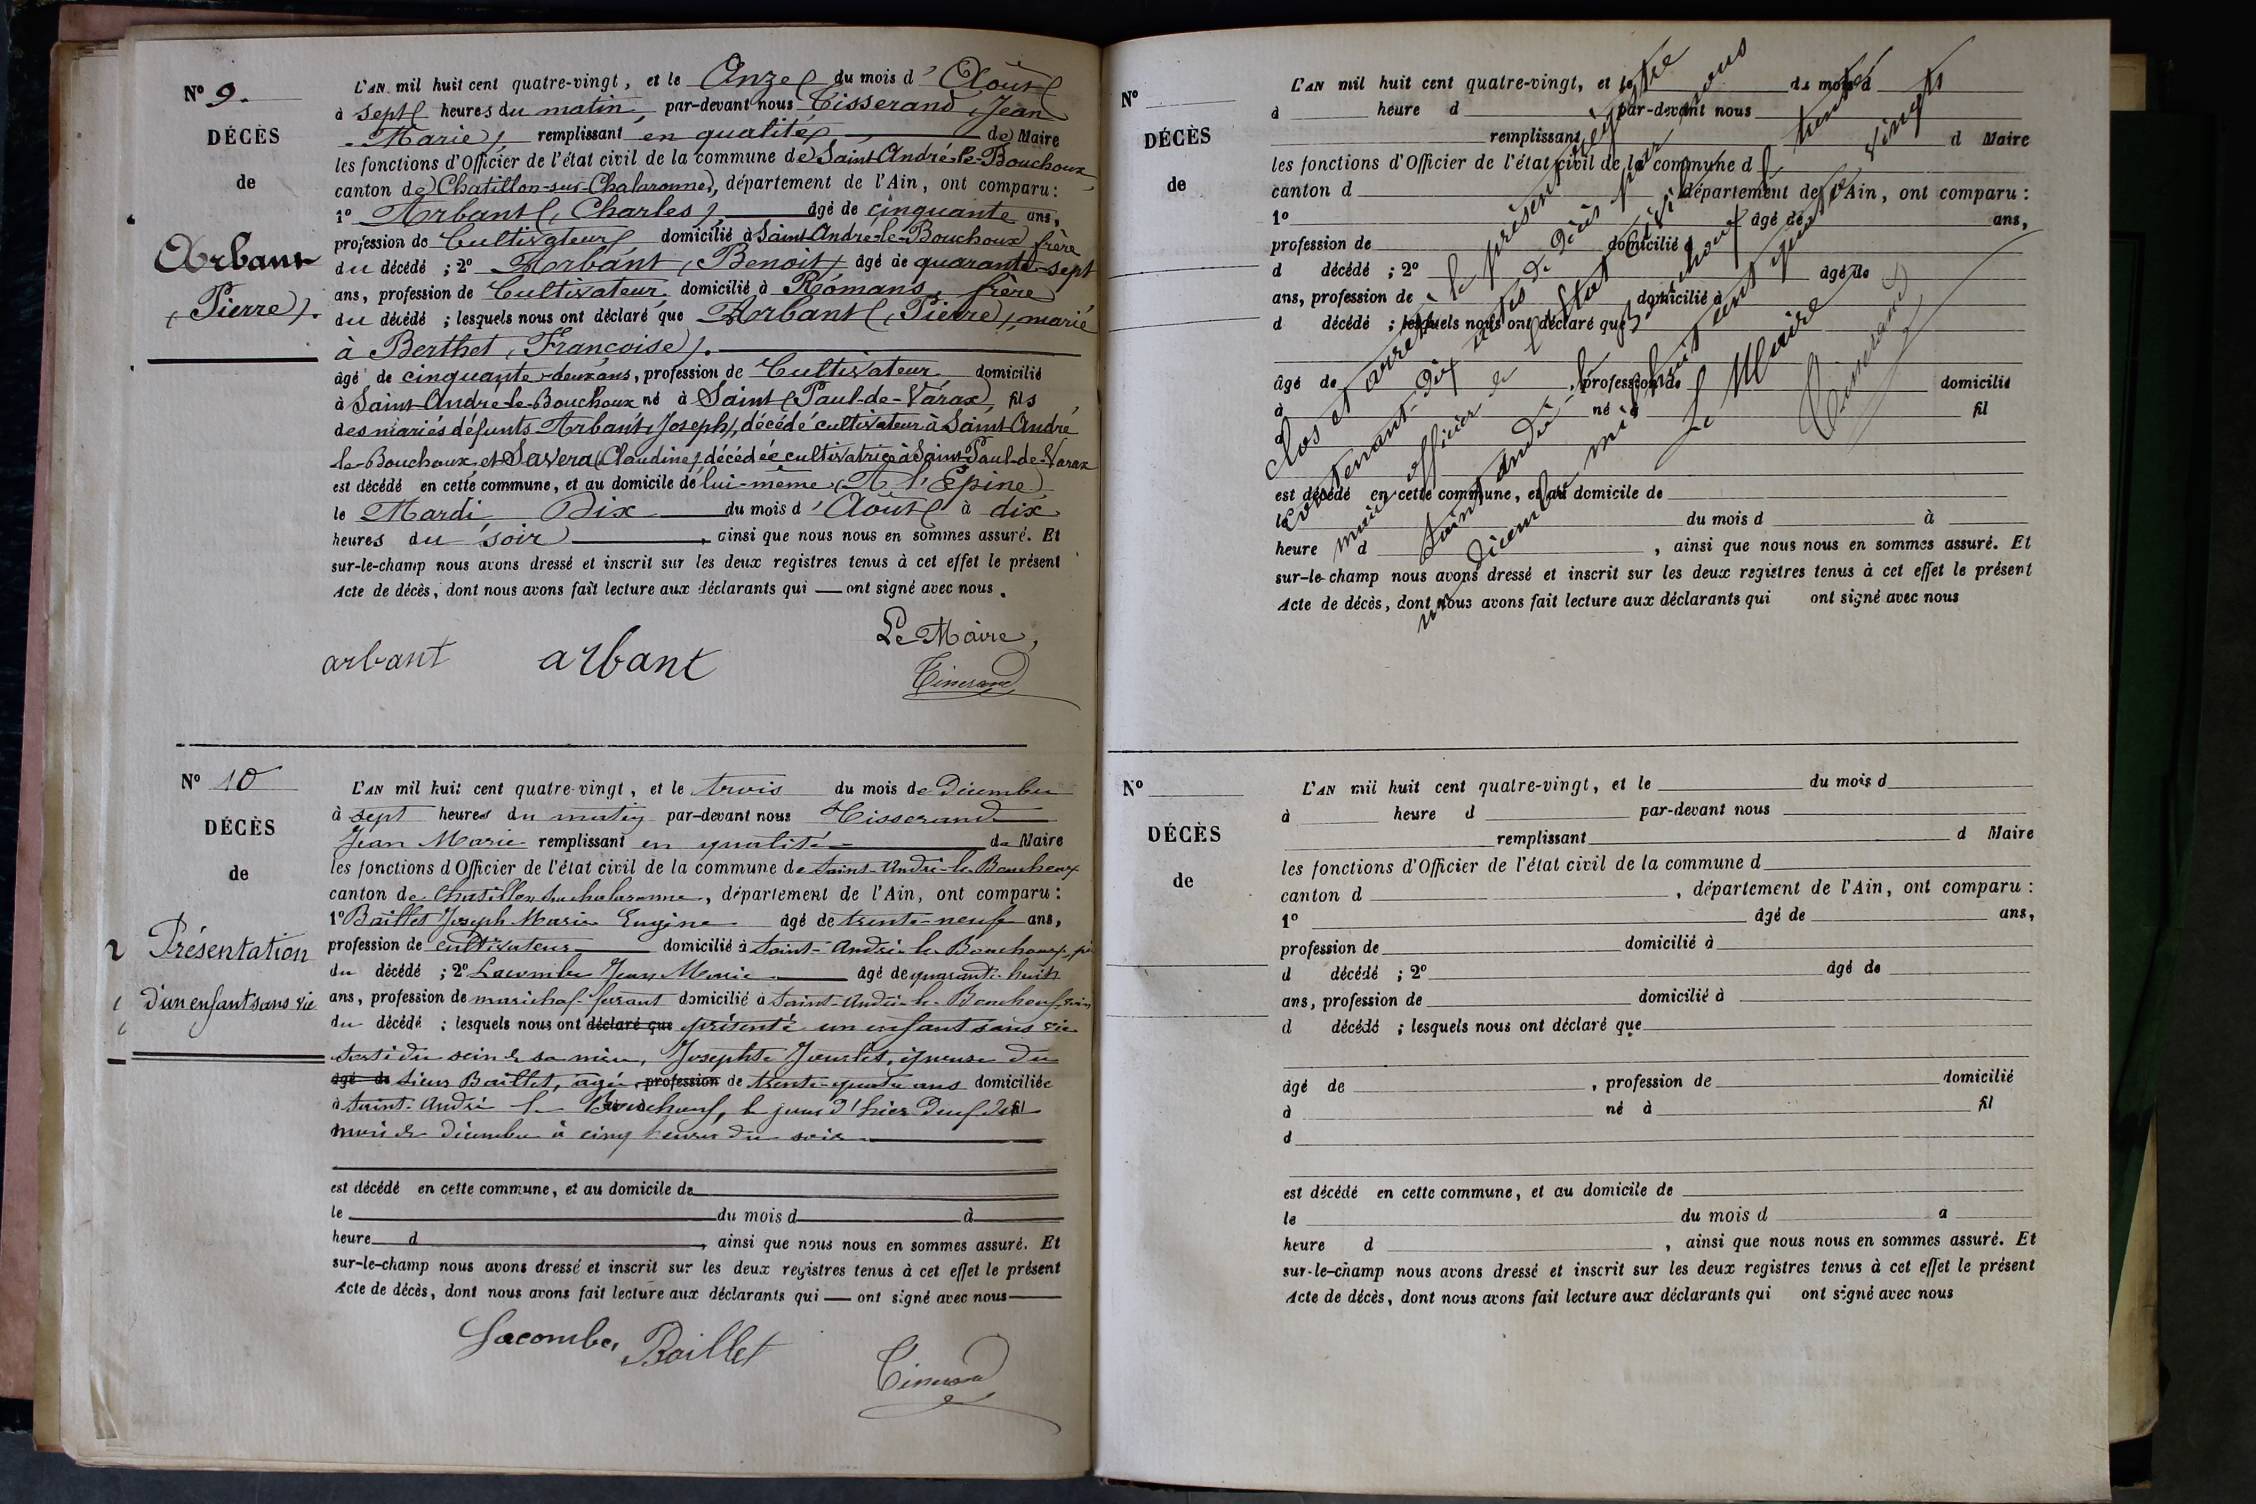 N° 9.
DÉCÈS
de
Arbant
(Pierre).
L'AN mil huit cent quatre-vingt, et le Onze du mois d'Août
à sept heures du matin, par-devant nous Tisserand, Jean
-Marie, remplissant en qualité de Maire
les fonctions d'Officier de l'état civil de la commune de Saint-André-le-Bouchoux,
canton de Chatillon-sur-Chalaronne, département de l'Ain, ont comparu :
1° Arbant (Charles), âgé de cinquante ans,
profession de Cultivateur domicilié à Saint-André-le-Bouchoux, frère
du décédé ; 2° Arbant (Benoit) âgé de quarante-sept
ans, profession de Cultivateur domicilié à Romans, frère
du décédé ; lesquels nous ont déclaré que Arbant (Pierre), marié
à Berthet (Françoise).
âgé de cinquante-deux ans, profession de Cultivateur domicilié
à Saint-André-le-Bouchoux né à Saint (Paul-de-Varax), fils
des mariés défunts Arbant (Joseph), décédé cultivateur à Saint André
le-Bouchoux et Savera (Claudine) décédée cultivatrice à Saint-Paul-de-Varax
est décédé en cette commune, et au domicile de lui-même (A l'Épine)
le Mardi Dix du mois d'Août à dix
heures du soir, ainsi que nous nous en sommes assuré. Et
sur-le-champ nous avons dressé et inscrit sur les deux registres tenus à cet effet le présent
Acte de décès, dont nous avons fait lecture aux déclarants qui ont signé avec nous.
Le Maire,
arbant arbant Tisserand
N° 10
DÉCÈS
de
Présentation
d'un enfant sans vie
L'AN mil huit cent quatre-vingt, et le trois du mois de Décembre
à sept heures du matin par-devant nous Tisserand
Jean Marie remplissant en qualité de Maire
les fonctions d'Officier de l'état civil de la commune de Saint-André-le-Bouchoux
canton de Chatillon sur chalaronne, département de l'Ain, ont comparu :
1° Baillet Joseph Marie Eugène âgé de trente-neuf ans,
profession de cultivateur domicilié à Saint-André-le-Bouchoux, père
du décédé ; 2° Lacombe Jean Marie âgé de quarante-huit
ans, profession de maréchal-ferrant domicilié à Saint-André-le-Bouchoux, voisin
du décédé ; lesquels nous ont déclaré que présenté un enfant sans vie
sorti du sein de sa mère, Josephte Jourlet, épouse du
âgé de sieur Baillet, âgée profession de trente-quatre ans domiciliée
à Saint-André le Bouchoux, le jour d'hier deux du fil
mois de décembre à cinq heures du soir
est décédé en cette commune, et au domicile de
le du mois d à
heure d, ainsi que nous nous en sommes assuré. Et
sur-le-champ nous avons dressé et inscrit sur les deux registres tenus à cet effet le présent
Acte de décès, dont nous avons fait lecture aux déclarants qui ont signé avec nous
Lacombe, Baillet Tisserand
N°
DÉCÈS
de
L'AN mil huit cent quatre-vingt, et le du mois d
à heure d par-devant nous
remplissant d Maire
les fonctions d'Officier de l'état civil de la commune d
canton d département de l'Ain, ont comparu :
1° âgé de ans,
profession de domicilié à
d décédé ; 2° âgé de
ans, profession de domicilié à
d décédé ; lesquels nous ont déclaré que
âgé de, profession de domicilié
à né à fil
est décédé en cette commune, et au domicile de
le du mois d à
heure d, ainsi que nous nous en sommes assuré. Et
sur-le-champ nous avons dressé et inscrit sur les deux registres tenus à cet effet le présent
Acte de décès, dont nous avons fait lecture aux déclarants qui ont signé avec nous
Clos et arrêté le présent registre
contenant dix actes de décès par nous
maire officier de l'état civil de
Saint André-le-Bouchoux le trente
un Décembre mil huit cent quatre vingt
Le Maire
Tisserand
N°
DÉCÈS
de
L'AN mil huit cent quatre-vingt, et le du mois d
à heure d par-devant nous
remplissant d Maire
les fonctions d'Officier de l'état civil de la commune d
canton d, département de l'Ain, ont comparu :
1° âgé de ans,
profession de domicilié à
d décédé ; 2° âgé de
ans, profession de domicilié à
d décédé ; lesquels nous ont déclaré que
âgé de, profession de domicilié
à né à fil
d
est décédé en cette commune, et au domicile de
le du mois d à
heure d, ainsi que nous nous en sommes assuré. Et
sur-le-champ nous avons dressé et inscrit sur les deux registres tenus à cet effet le présent
Acte de décès, dont nous avons fait lecture aux déclarants qui ont signé avec nous